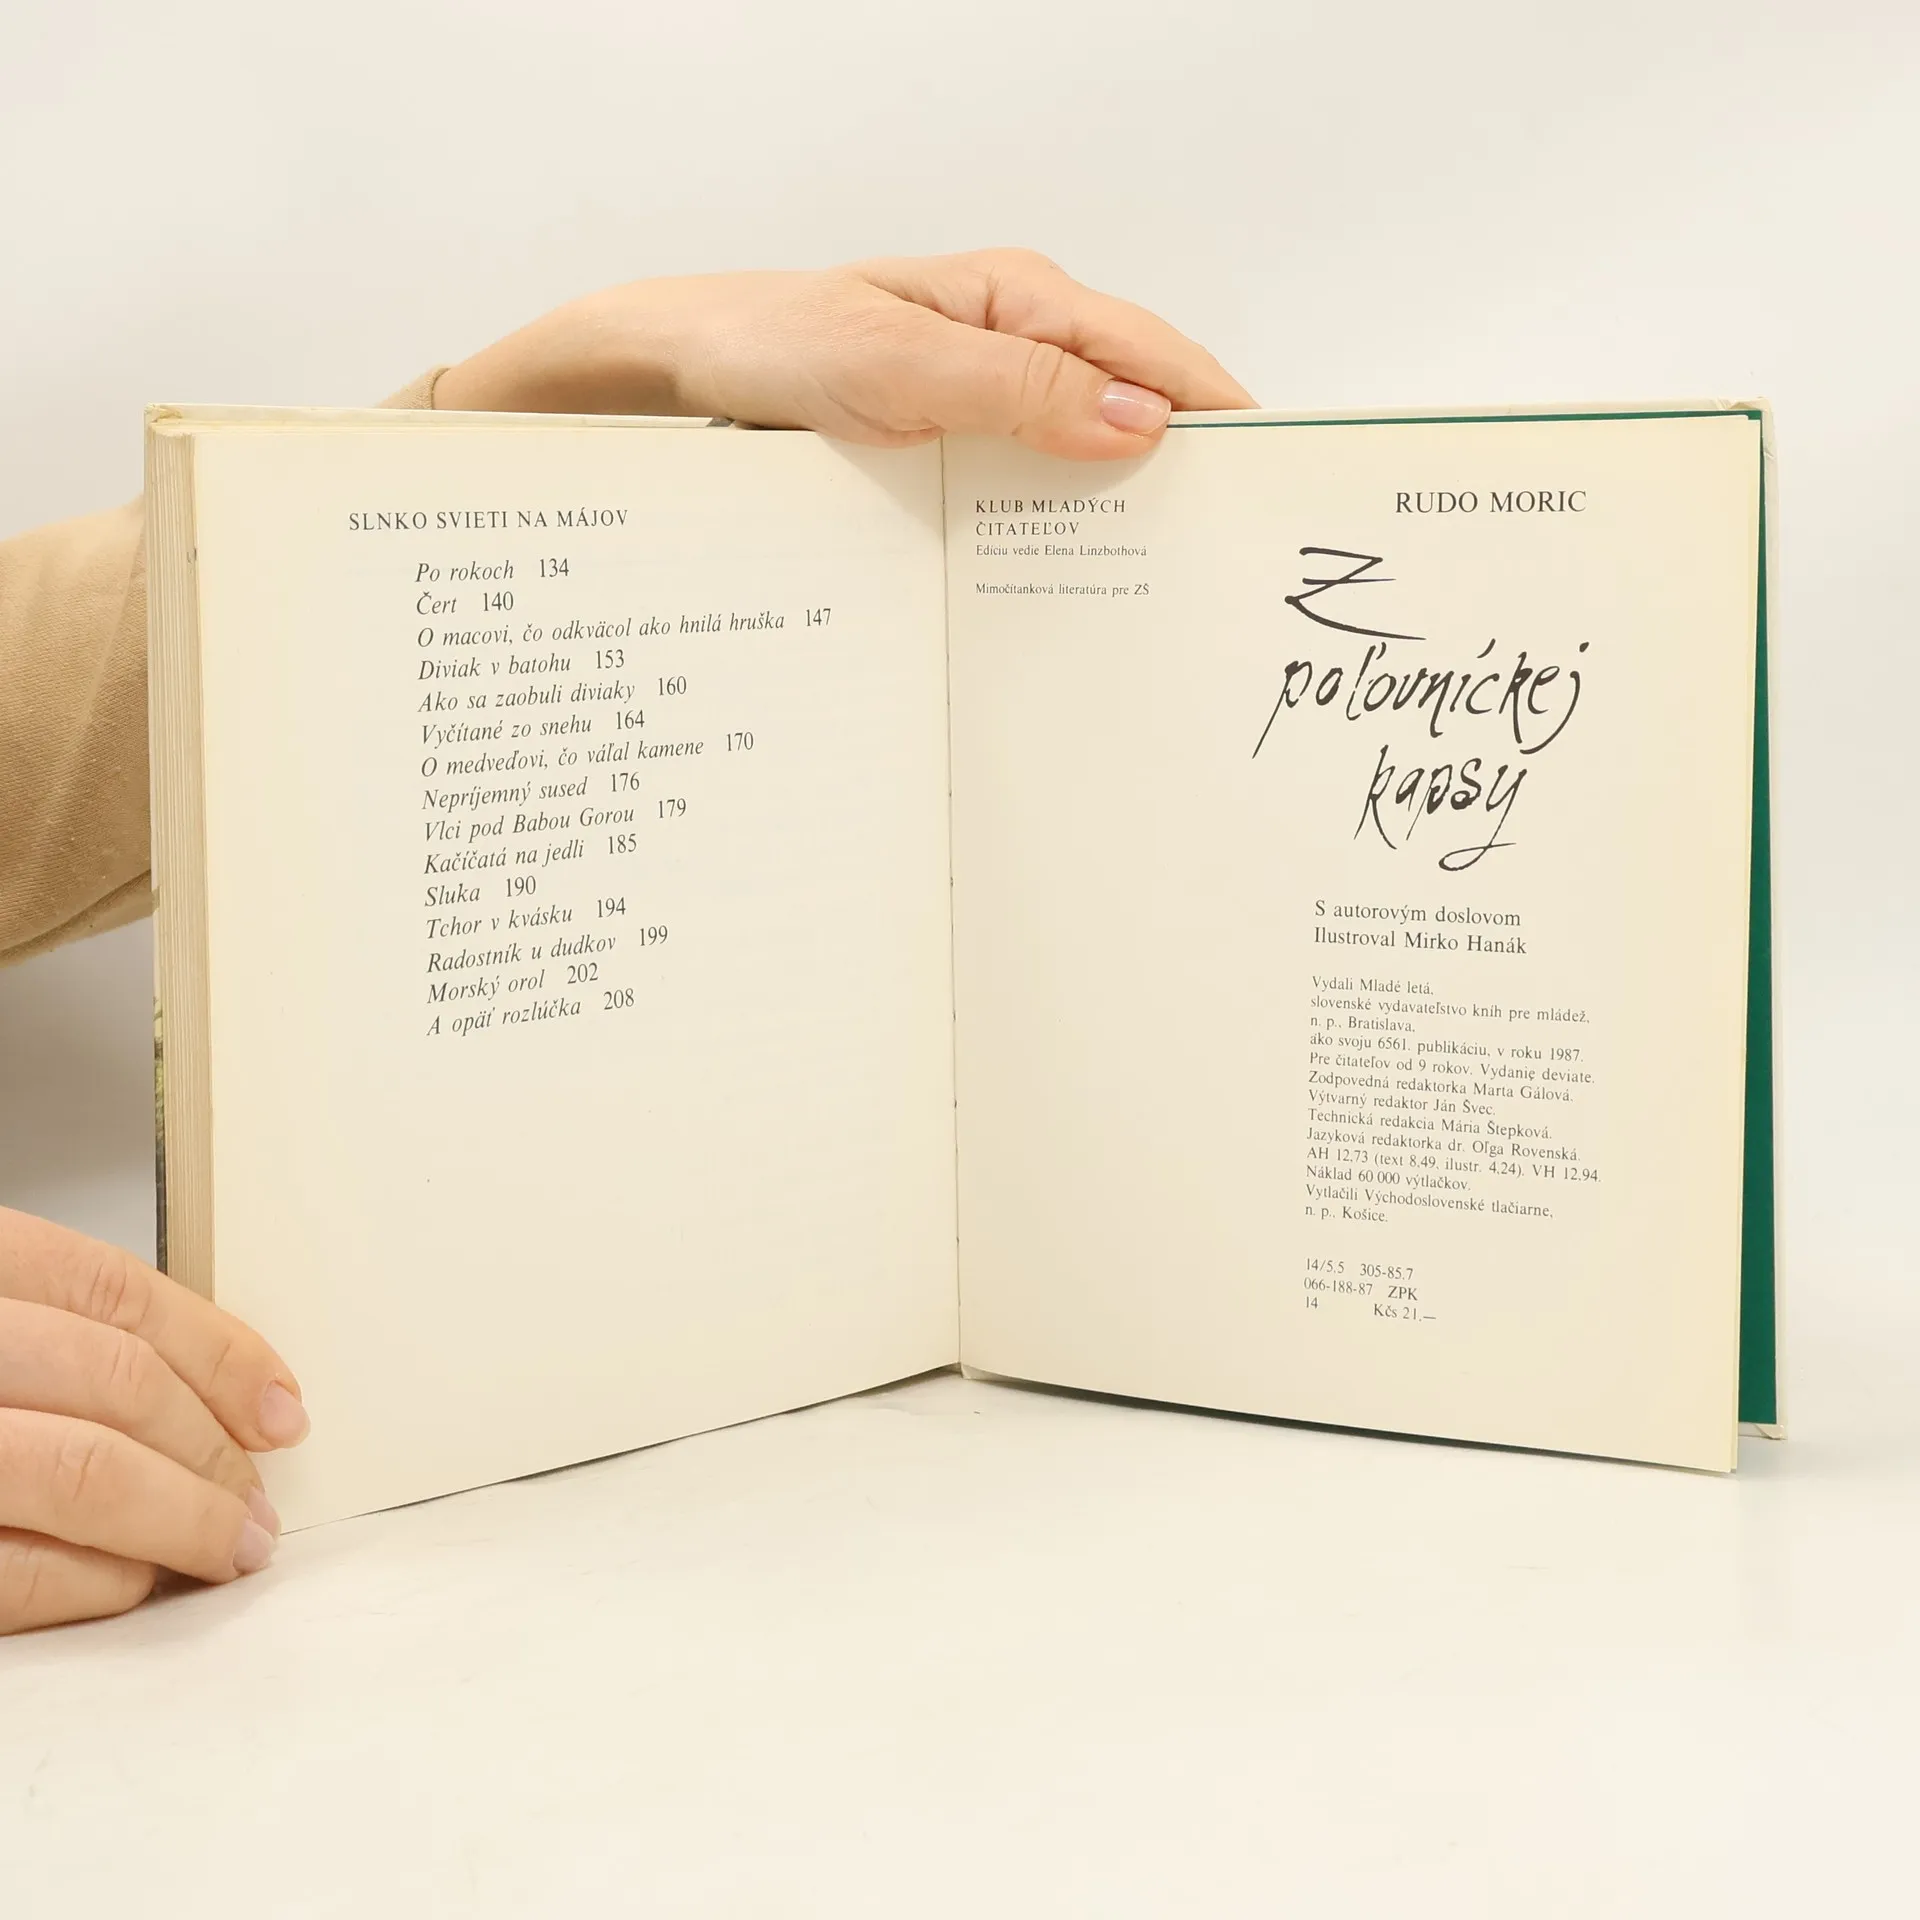 SLNKO SVIETI NA MÁJOV
Po rokoch 134
Čert 140
O macovi, čo odkväcol ako hnilá hruška 147
Diviak v batohu 153
Ako sa zaobuli diviaky 160
Vyčítané zo snehu 164
O medveďovi, čo váľal kamene 170
Nepríjemný sused 176
Vlci pod Babou Gorou 179
Kačíčatá na jedli 185
Sluka 190
Tchor v kvásku 194
Radostník u dudkov 199
Morský orol 202
A opäť rozlúčka 208
KLUB MLADÝCH
ČITATEĽOV
Edíciu vedie Elena Linzbothová
Mimočítanková literatúra pre ZŠ
RUDO MORIC
Z
poľovníckej
kapsy
S autorovým doslovom
Ilustroval Mirko Hanák
Vydali Mladé letá,
slovenské vydavateľstvo kníh pre mládež,
n. p., Bratislava,
ako svoju 6561. publikáciu, v roku 1987.
Pre čitateľov od 9 rokov. Vydanie deviate.
Zodpovedná redaktorka Marta Gálová.
Výtvarný redaktor Ján Švec.
Technická redakcia Mária Štepková.
Jazyková redaktorka dr. Oľga Rovenská.
AH 12,73 (text 8,49, ilustr. 4,24). VH 12,94.
Náklad 60 000 výtlačkov.
Vytlačili Východoslovenské tlačiarne,
n. p., Košice.
14/5.5 305-85.7
066-188-87 ZPK
14 Kčs 21.—